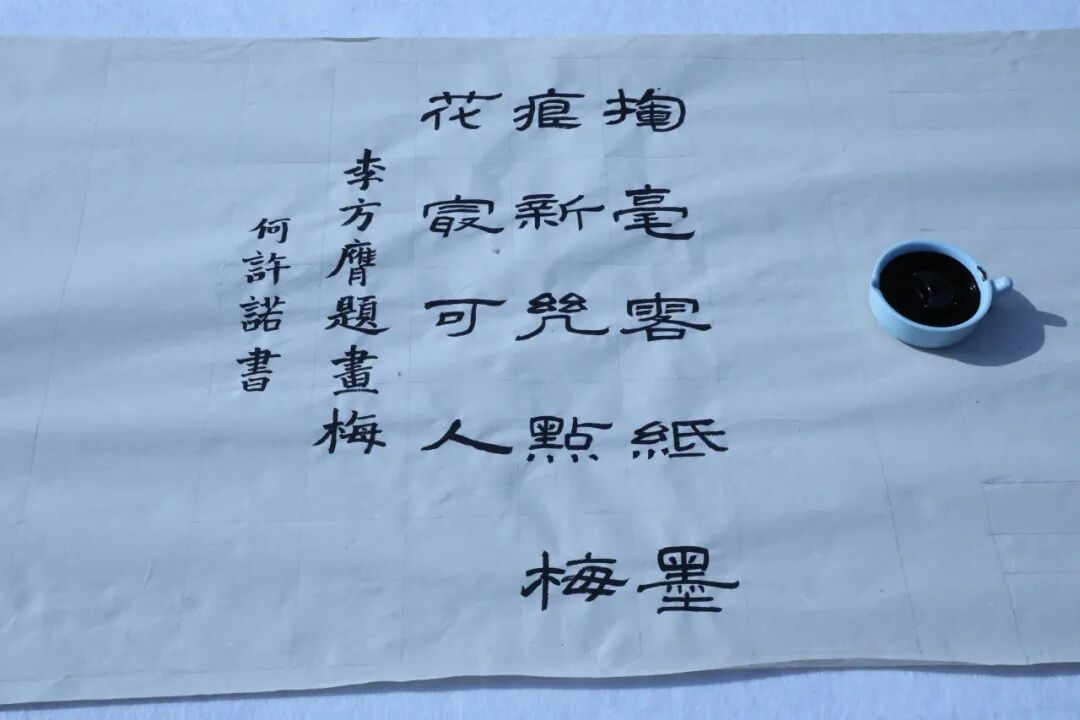 揮毫落紙墨
痕新幾點梅
花最可人
李方膺題畫梅
何許諾書